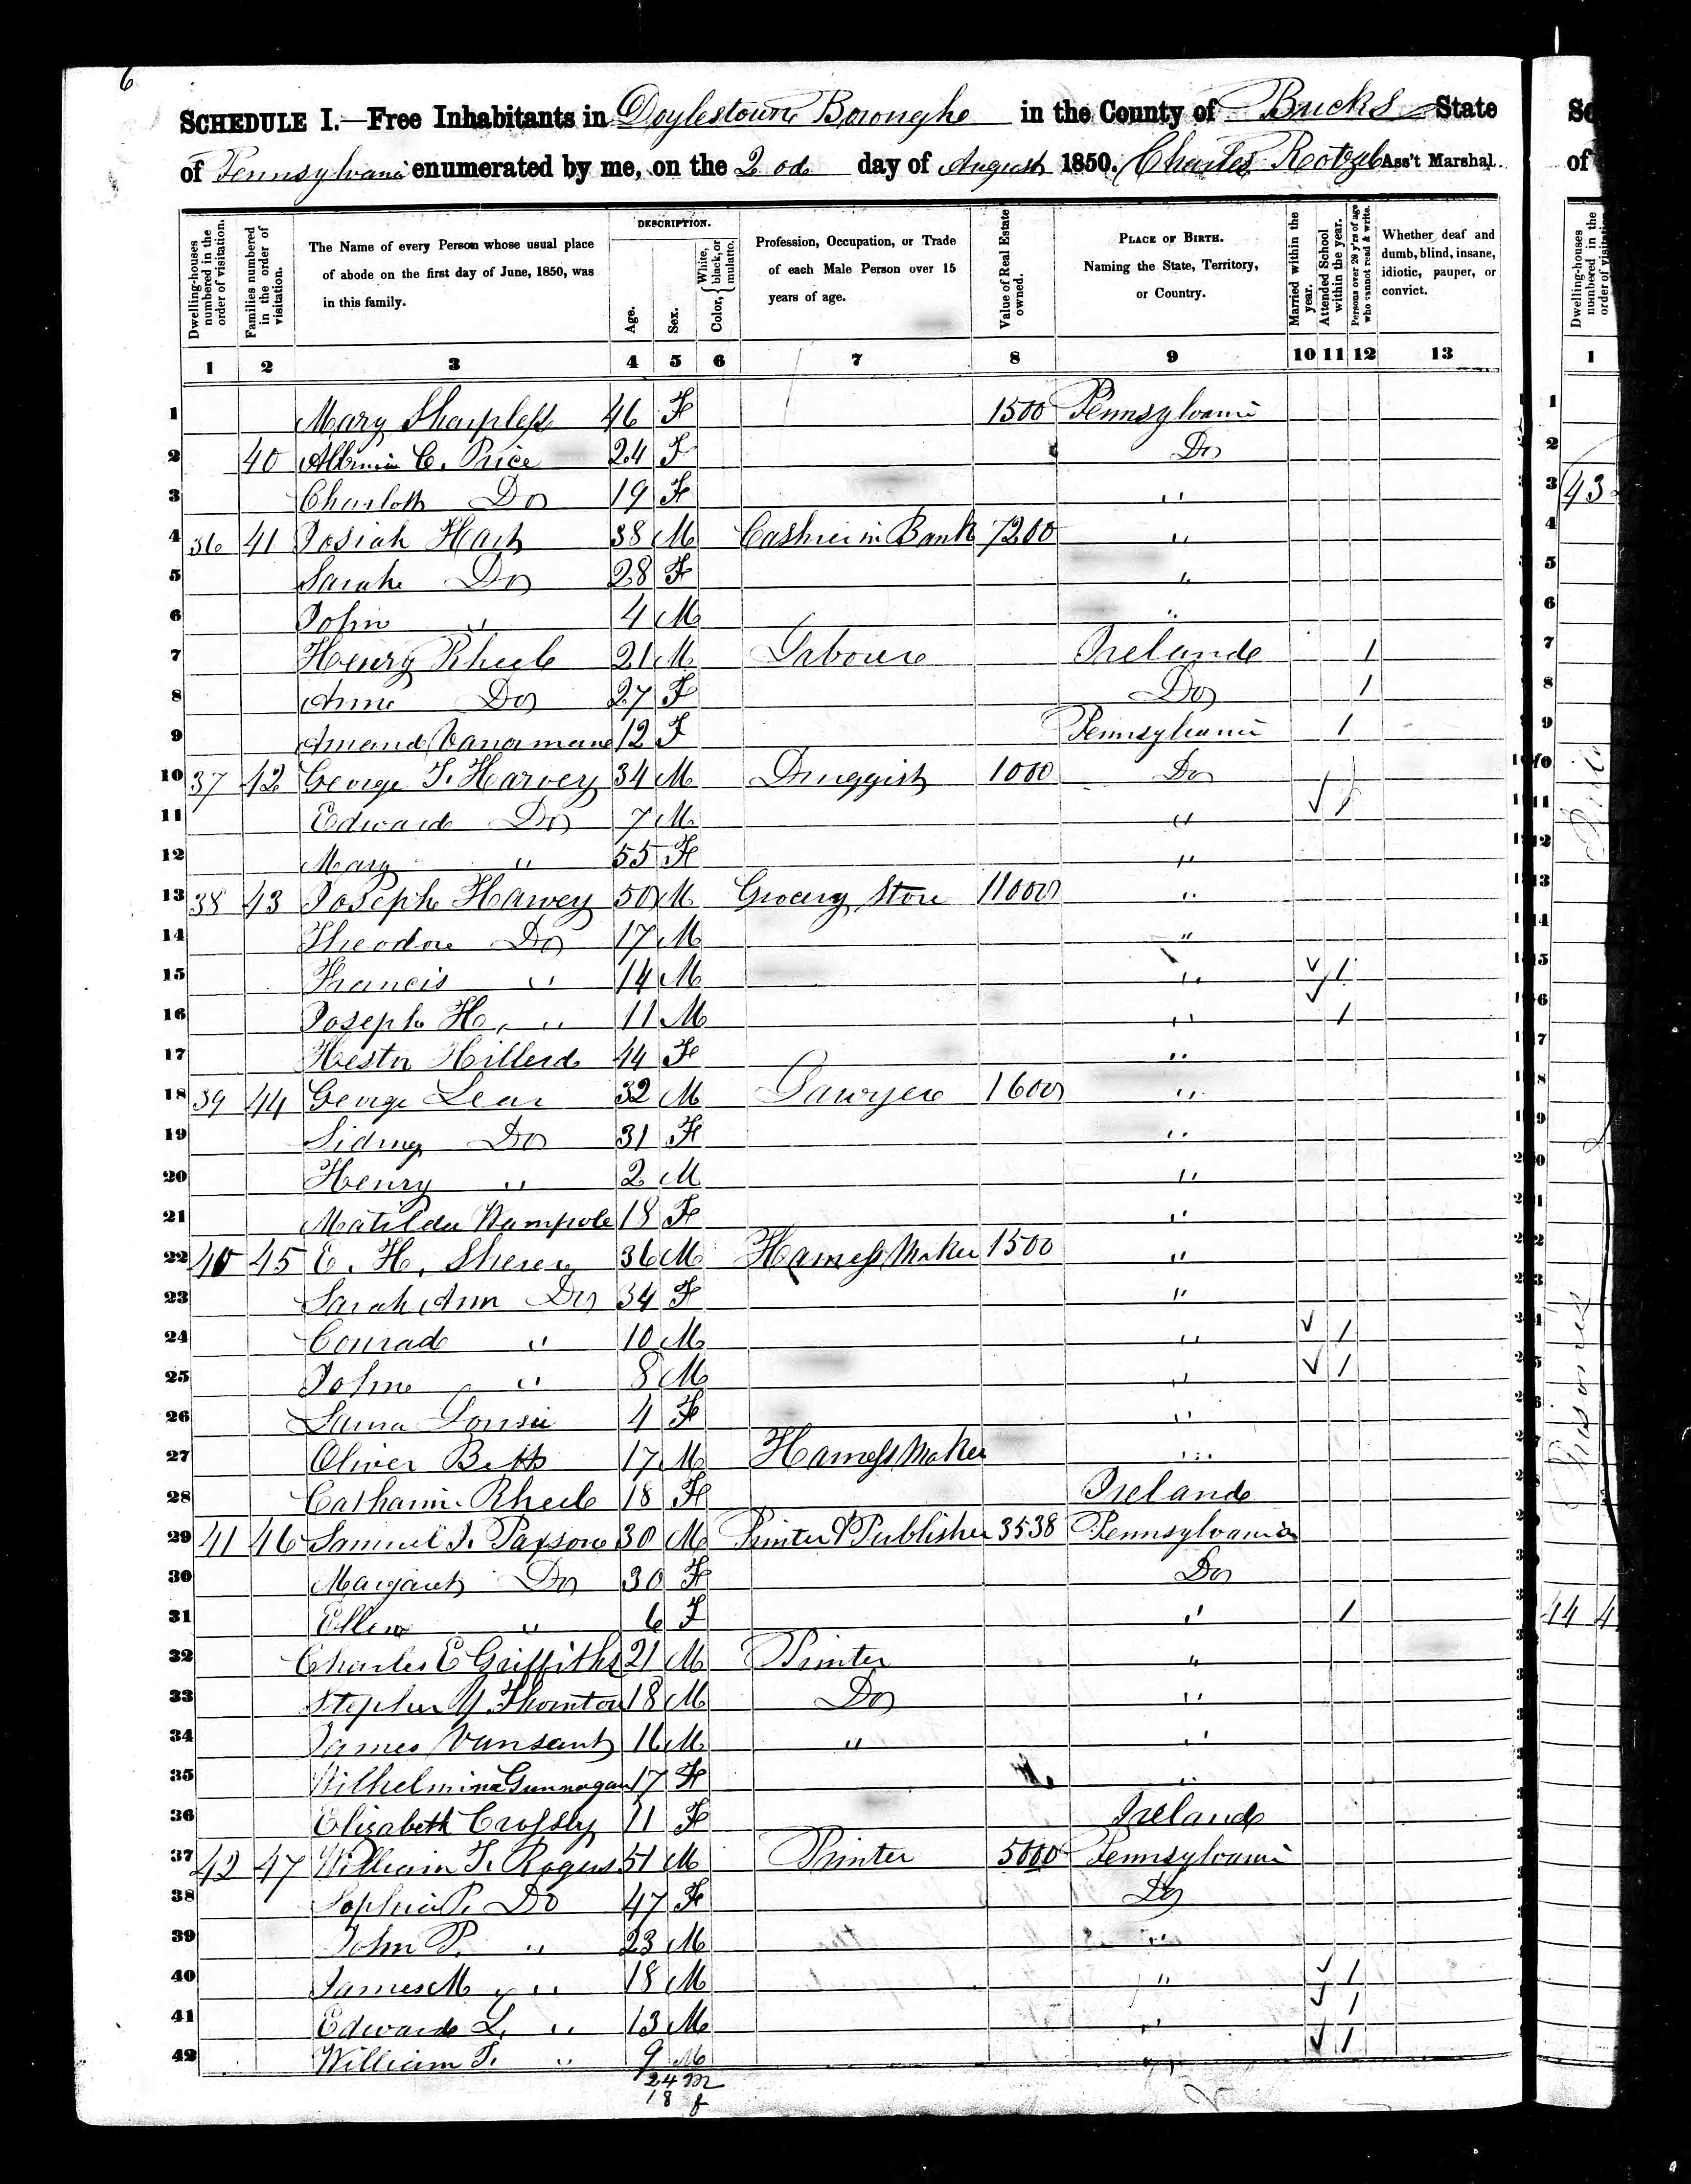 6
SCHEDULE I.—Free Inhabitants in Doylestown Boroughe in the County of Bucks State
of Pennsylvani enumerated by me, on the 2 od day of August 1850. Charles Ass't Marshal.
Dwelling-houses numbered in the order of visitation.
Families numbered in the order of visitation.
The Name of every Person whose usual place of abode on the first day of June, 1850, was in this family.
DESCRIPTION.
Age.
Sex.
Color, { White, black, or mulatto.
Profession, Occupation, or Trade of each Male Person over 15 years of age.
Value of Real Estate owned.
PLACE OF BIRTH. Naming the State, Territory, or Country.
Married within the year.
Attended School within the year.
Persons over 20 y'rs of age who cannot read & write.
Whether deaf and dumb, blind, insane, idiotic, pauper, or convict.
1 2 3 4 5 6 7 8 9 10 11 12 13
1 Mary Sharpless 46 F 1500 Pennsylvani
2 40 C. Price 24 F Do
3 Charlott Do 19 F "
4 36 41 Josiah Hart 38 M Cashier in Bank 7200 "
5 Sarah Do 28 F "
6 John " 4 M "
7 Henry Rheile 21 M Labourer Ireland 1
8 Anne Do 27 F Do 1
9 Amand Vanormane 12 F Pennsylvani 1
10 37 42 George T. Harvey 34 M Druggist 1000 Do
11 Edward Do 7 M " ✓ 1
12 Mary " 55 F "
13 38 43 Joseph Harvey 50 M Grocery Store 11000 "
14 Theodore Do 17 M "
15 Francis " 14 M " ✓ 1
16 Joseph H. " 11 M " ✓ 1
17 Hester Hillerd 44 F "
18 39 44 George Lear 32 M Lawyer 1600 "
19 Sidney Do 31 F "
20 Henry " 2 M "
21 Matilda Wampole 18 F "
22 40 45 E. H. Sherey 36 M Harness Maker 1500 "
23 Sarah Ann Do 34 F "
24 Conrad " 10 M " ✓ 1
25 John " 8 M " ✓ 1
26 Laura Louisie 4 F "
27 Oliver Betts 17 M Harness Maker "
28 Catharin Rheile 18 F Ireland
29 41 46 Samuel J. Paxson 30 M Printer & Publisher 3538 Pennsylvania
30 Margaret Do 30 F Do
31 Ellen " 6 F " 1
32 Charles E Griffiths 21 M Printer "
33 Stephen Y. Thornton 18 M Do "
34 James Vansant 16 M " "
35 Wilhelmina Gunnagan 17 F "
36 Elizabeth Crossly 11 F Ireland
37 42 47 William T. Rogers 51 M Printer 5000 Pennsylvani
38 Sophia P. Do 47 F Do
39 John P. " 23 M "
40 James M " 18 M " ✓ 1
41 Edward L. " 13 M " ✓ 1
42 William T. " 9 M " ✓ 1
24 m
18 f